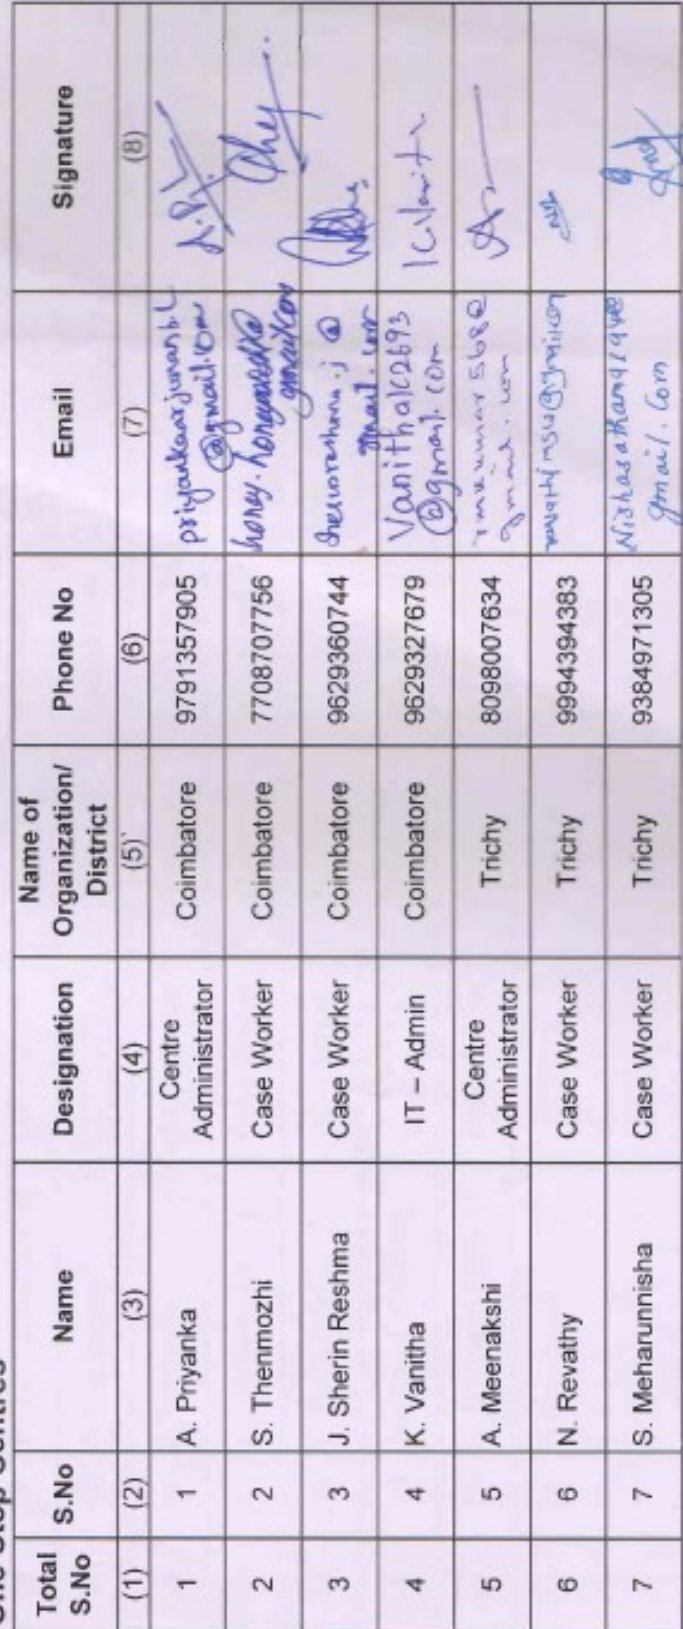 One Stop Centres
Total S.No | S.No | Name | Designation | Name of Organization/ District | Phone No | Email | Signature
(1) | (2) | (3) | (4) | (5) | (6) | (7) | (8)
1 | 1 | A. Priyanka | Centre Administrator | Coimbatore | 9791357905 | @gmail.com
2 | 2 | S. Thenmozhi | Case Worker | Coimbatore | 7708707756
3 | 3 | J. Sherin Reshma | Case Worker | Coimbatore | 9629360744 | gmail.com
4 | 4 | K. Vanitha | IT – Admin | Coimbatore | 9629327679 | Vanithak2693 @gmail.com | K.Vanitha
5 | 5 | A. Meenakshi | Centre Administrator | Trichy | 8098007634 | gmail.com
6 | 6 | N. Revathy | Case Worker | Trichy | 9994394383
7 | 7 | S. Meharunnisha | Case Worker | Trichy | 9384971305 | gmail.com